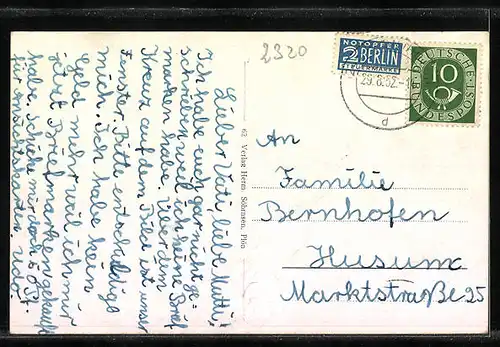 2320
NOTOPFER
2 BERLIN
STEUERMARKE
DEUTSCHE
BUNDESPOST
10
29.6.52.
d
An
Familie
Bernhofen
Husum
Marktstraße 25
62 Verlag Herm. Söhnsen, Plön
Lieber Vati, liebe Mutti,
Ich habe euch gar nicht ge-
schrieben weil ich keine Brief
marken habe. Über dem
Kreuz auf dem Bild ist unser
Fenster. Bitte entschuldigt
mich. Ich habe kein
Geld mehr weil ich mir
jetzt Briefmarken gekauft
habe. Schickt mir doch 50 Pf.
für Ansichtskarten. Udo.